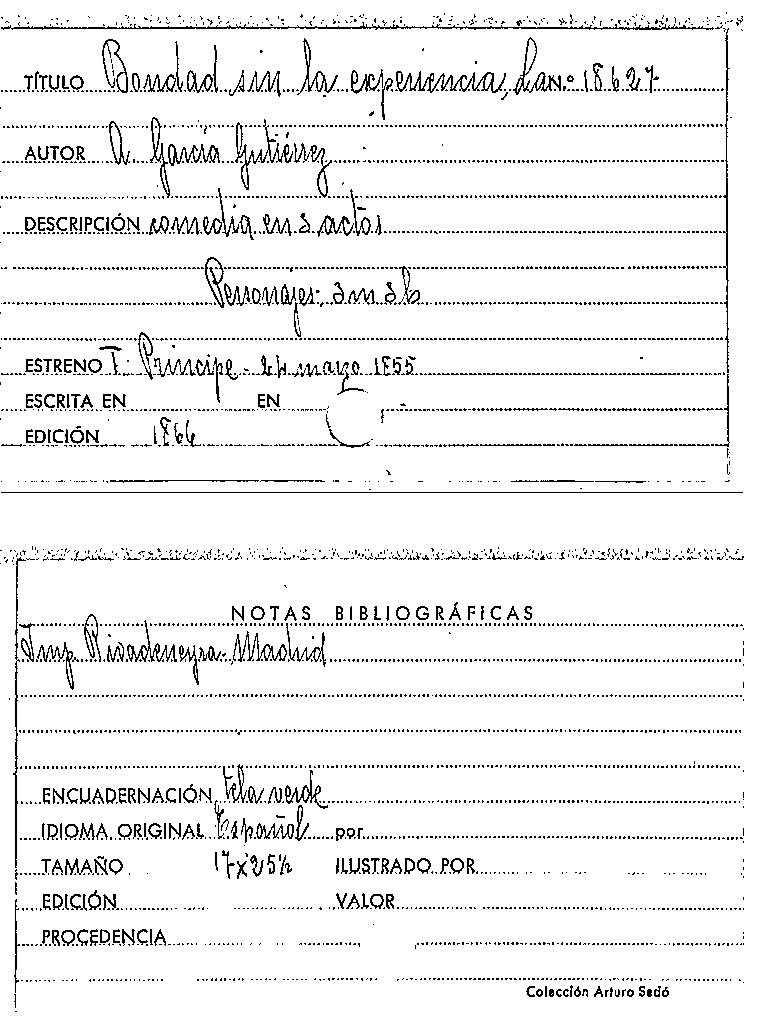 TÍTULO Bondad sin la experiencia, La N.º 18627
AUTOR A. García Gutiérrez
DESCRIPCIÓN comedia en 3 actos
Personajes: 3m 3h
ESTRENO T. Príncipe - 24 marzo 1855
ESCRITA EN EN
EDICIÓN 1866
NOTAS BIBLIOGRÁFICAS
Imp. Rivadeneyra - Madrid
ENCUADERNACIÓN tela verde
IDIOMA ORIGINAL Español por
TAMAÑO 17x25½ ILUSTRADO POR
EDICIÓN VALOR
PROCEDENCIA
Colección Arturo Sedó